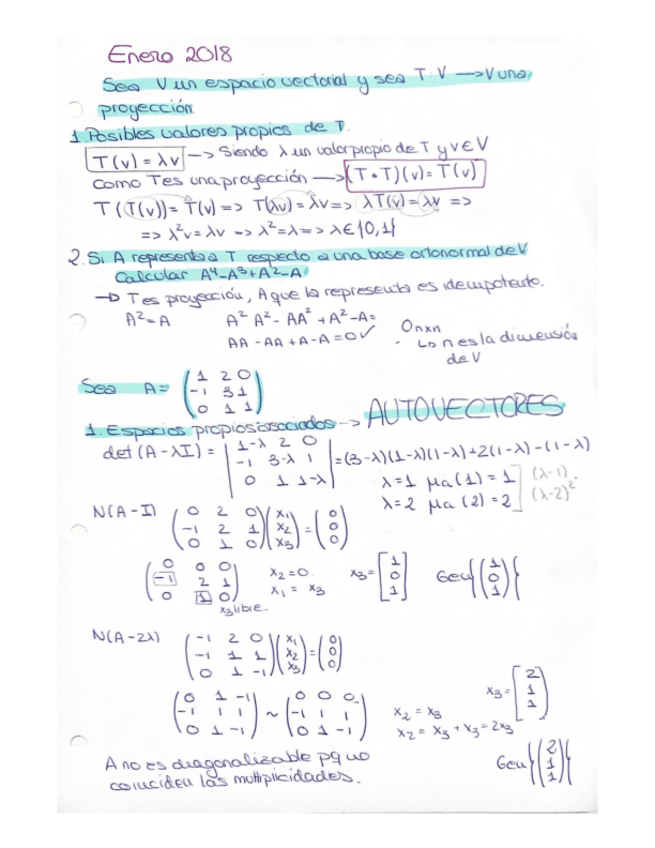 Enero 2018
Sea V un espacio vectorial y sea T: V → V una
proyección
1. Posibles valores propios de T.
T(v) = λv → Siendo λ un valor propio de T y v ∈ V
Como T es una proyección → (T∘T)(v) = T(v)
T(T(v)) = T(v) => T(λv) = λv => λT(v) = λv =>
=> λ²v = λv => λ² = λ => λ ∈ {0,1}
2. Si A representa a T respecto a una base ortonormal de V
Calcular A⁴-A³+A²-A
→ T es proyección, A que la representa es idempotente.
A² = A A²A² - AA² + A² - A =
AA - AA + A - A = 0 ✓ Onxn
↳ n es la dimensión
de V
Sea A = ( 1 2 0
-1 3 1
0 1 1 )
1. Espacios propios asociados → AUTOVECTORES
det (A - λI) = | 1-λ 2 0
-1 3-λ 1
0 1 1-λ | = (3-λ)(1-λ)(1-λ) + 2(1-λ) - (1-λ)
λ = 1 μa(1) = 1 (λ-1)
λ = 2 μa(2) = 2 (λ-2)²
N(A - I) ( 0 2 0
-1 2 1
0 1 0 ) ( x₁ x₂ x₃ ) = ( 0 0 0 )
( 0 0 0
-1 2 1
0 1 0 ) x₂ = 0. x₁ = x₃ x₃ = [ 1 0 1 ] Gen{( 1 0 1 )}
x₃ libre.
N(A - 2λ) ( -1 2 0
-1 1 1
0 1 -1 ) ( x₁ x₂ x₃ ) = ( 0 0 0 )
( 0 1 -1
-1 1 1
0 1 -1 ) ~ ( 0 0 0
-1 1 1
0 1 -1 ) x₃ = [ 2 1 1 ]
x₂ = x₃
x₂ = x₃ + x₃ = 2x₃
Gen{( 2 1 1 )}
A no es diagonalizable pq no
coinciden las multiplicidades.